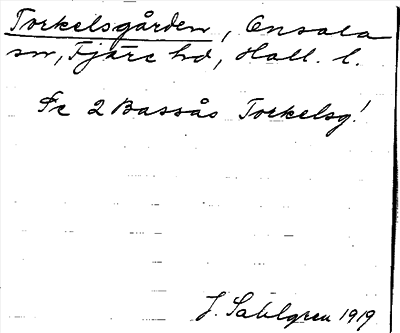 Torkelsgården, Onsala
sn, Fjäre hd, Hall. l.
Se 2 Bassås Torkelsg!
J. Sahlgren 1919